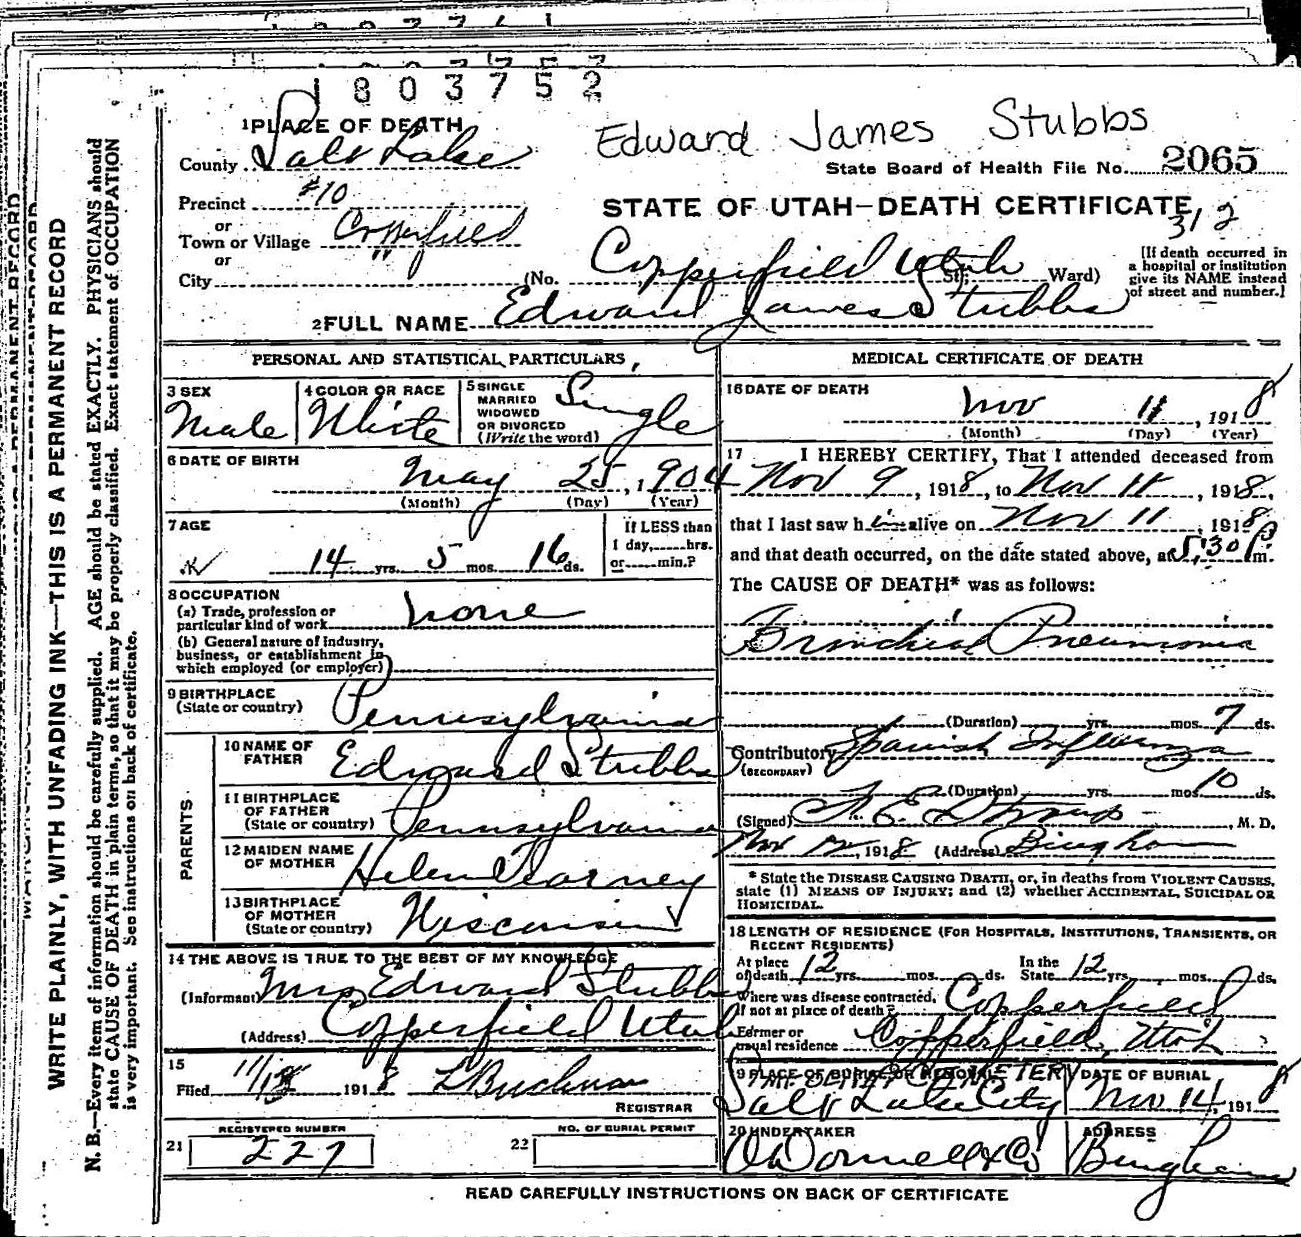 1803752
Edward James Stubbs
1 PLACE OF DEATH
County Salt Lake
State Board of Health File No. 2065
Precinct #10
or
Town or Village Copperfield
or
City "
STATE OF UTAH—DEATH CERTIFICATE
312
(No. Copperfield Utah St; Ward)
[If death occurred in
a hospital or institution
give its NAME instead
of street and number.]
2 FULL NAME Edward James Stubbs
PERSONAL AND STATISTICAL PARTICULARS
3 SEX
Male
4 COLOR OR RACE
White
5 SINGLE
MARRIED
WIDOWED
OR DIVORCED
(Write the word)
Single
6 DATE OF BIRTH
May 25, 1904
(Month) (Day) (Year)
7 AGE
14 yrs. 5 mos. 16 ds.
If LESS than
1 day,......hrs.
or......min.?
8 OCCUPATION
(a) Trade, profession or
particular kind of work none
(b) General nature of industry,
business, or establishment in
which employed (or employer)
9 BIRTHPLACE
(State or country) Pennsylvania
PARENTS
10 NAME OF
FATHER Edward Stubbs
11 BIRTHPLACE
OF FATHER
(State or country) Pennsylvania
12 MAIDEN NAME
OF MOTHER Helen Kearney
13 BIRTHPLACE
OF MOTHER
(State or country) Wisconsin
14 THE ABOVE IS TRUE TO THE BEST OF MY KNOWLEDGE
(Informant) Mrs Edward Stubbs
(Address) Copperfield Utah
15
Filed 11/13 1918
REGISTRAR
REGISTERED NUMBER
21 227
NO. OF BURIAL PERMIT
22
MEDICAL CERTIFICATE OF DEATH
16 DATE OF DEATH
Nov 11, 1918
(Month) (Day) (Year)
17 I HEREBY CERTIFY, That I attended deceased from
Nov 9, 1918, to Nov 11, 1918,
that I last saw him alive on Nov 11, 1918
and that death occurred, on the date stated above, at 5:30 P m.
The CAUSE OF DEATH* was as follows:
Bronchial Pneumonia
(Duration) yrs. mos. 7 ds.
Contributory Spanish Influenza
(SECONDARY)
(Duration) yrs. mos. 10 ds.
(Signed) F. E. Straup, M. D.
Nov 12, 1918 (Address) Bingham
* State the DISEASE CAUSING DEATH, or, in deaths from VIOLENT CAUSES,
state (1) MEANS OF INJURY; and (2) whether ACCIDENTAL, SUICIDAL OR
HOMICIDAL.
18 LENGTH OF RESIDENCE (FOR HOSPITALS, INSTITUTIONS, TRANSIENTS, OR
RECENT RESIDENTS)
At place In the
of death 12 yrs. mos. ds. State 12 yrs. mos. ds.
Where was disease contracted,
if not at place of death? Copperfield
Former or
usual residence Copperfield, Utah
19 PLACE OF BURIAL OR REMOVAL
MT. OLIVET CEMETERY
Salt Lake City
DATE OF BURIAL
Nov 14, 1918
20 UNDERTAKER
O'Donnell & Co
ADDRESS
Bingham
READ CAREFULLY INSTRUCTIONS ON BACK OF CERTIFICATE
WRITE PLAINLY, WITH UNFADING INK—THIS IS A PERMANENT RECORD
N. B.—Every item of information should be carefully supplied. AGE should be stated EXACTLY. PHYSICIANS should
state CAUSE OF DEATH in plain terms, so that it may be properly classified. Exact statement of OCCUPATION
is very important. See instructions on back of certificate.